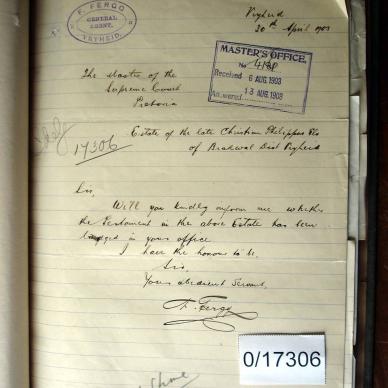 F. FERGO
GENERAL
AGENT.
VRYHEID.
Vryheid
30th April 1903
MASTER'S OFFICE,
No
Received 6 AUG. 1903
Answered 13 AUG. 1903
The Master of the
Supreme Court
Pretoria
17306
Estate of the late Christian Philippus
of Dist Vryheid
Sir,
Will you kindly inform me whether
the Testament in the above Estate has been
lodged in your office
I have the honour to be,
Sir,
Your obedient Servant,
F. Fergo
0/17306